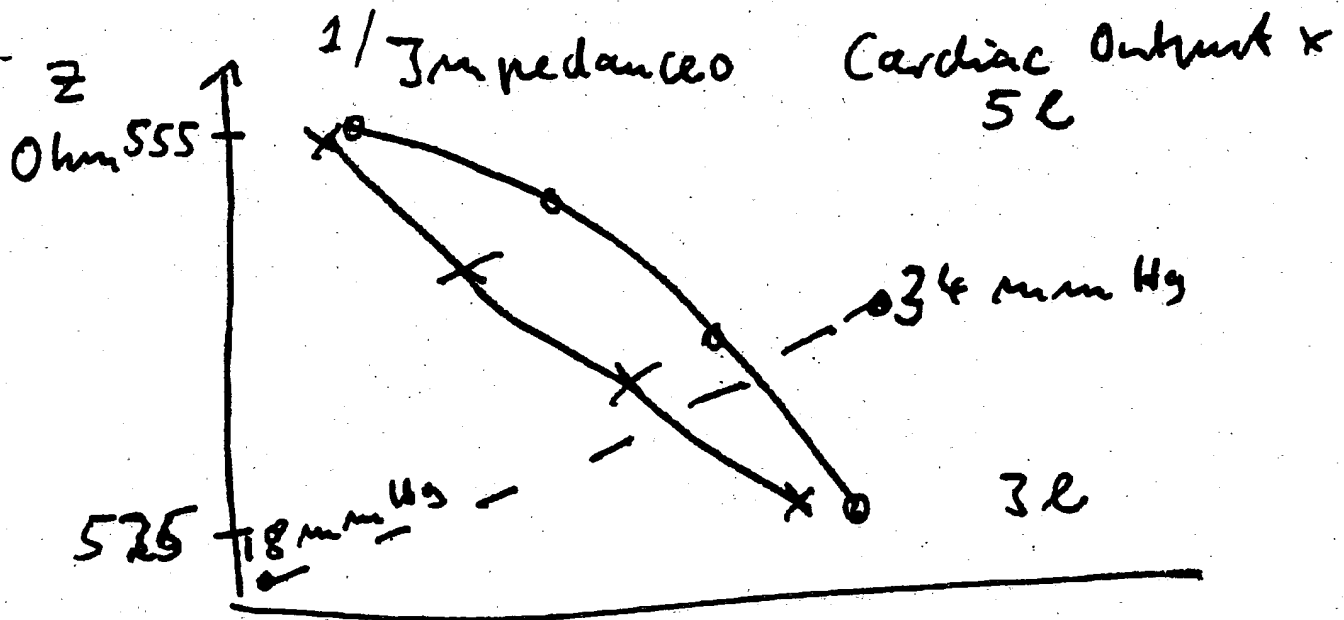 1/Impedance o Cardiac Output x
Z 5 l
Ohm 555
34 mm Hg
18 mm Hg 3 l